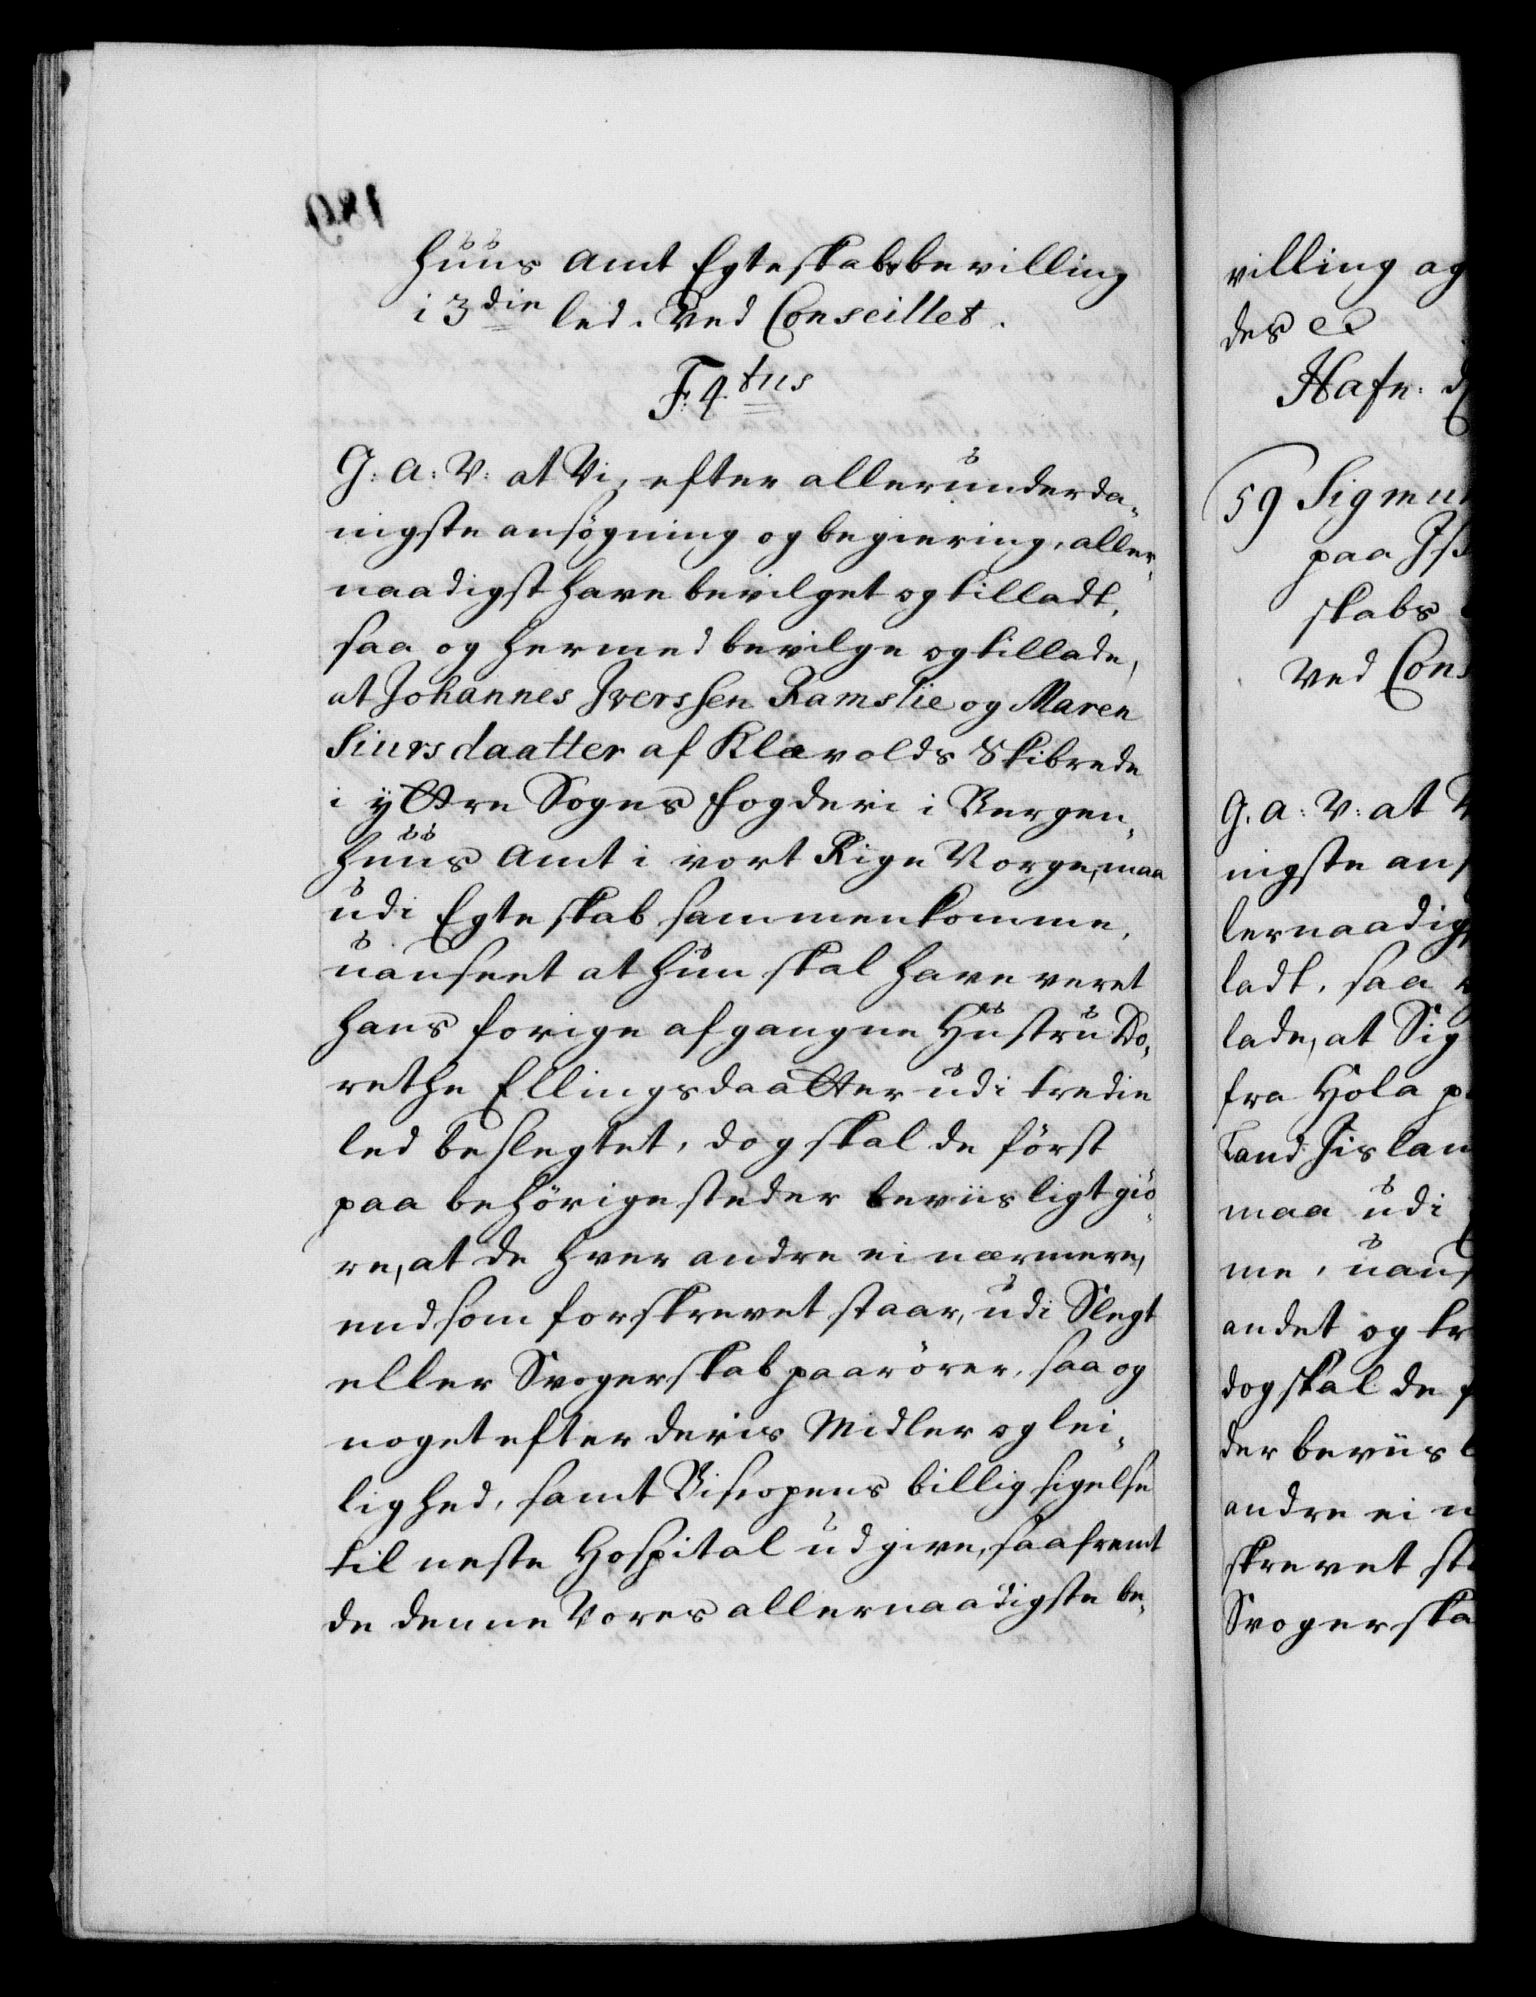 huus Amt Egteskabsbevilling
i 3die led. Ved Conseillet.
F. 4.tus
G: A: V: at Vi, efter allerunderda-
nigste ansøgning og begiering, aller-
naadigst have bevilget og tilladt,
saa og hermed bevilge og tillade,
at Johannes Iverssen Ramslie og Maren
Siursdaatter af Klævolds Skibrede
i ÿttre Sogns fogderi i Bergen-
huus Amt i vort Rige Norge, maa
udi Egteskab sammenkomme,
uanseet at hun skal have veret
hans forige afgangne Hustru Do-
rethe Ellingsdaatter udi tredie
led beslegtet, dog skal de först
paa behörige steder beviisligt giö-
re, at de hver andre ei nærmere,
end som forskrevet staar, udi Slegt
eller Svogerskab paarörer, saa og
noget efter deris Midler og lei-
lighed, samt Biscopens billig sigelse
til neste Hospital udgive, saafremt
de denne Vores allernaadigste be-
villing ag
des
Hafn: d
59 Sigmu
paa Iß
skabs
Ved Cons
G. A: V: at V
nigste ans
lernaadig
ladt, saa
lade, at Sig
fra Hola p
Land Iislan
maa udi
me, uans
andet og tr
dog skal de f
der beviisl
andre ei n
skrevet sta
Svogerska
189